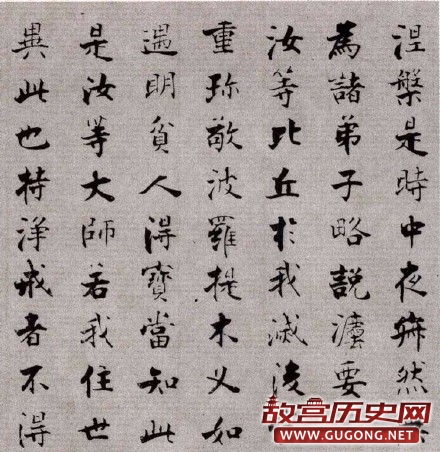 涅槃是時中夜寂然
為諸弟子略說灋要
汝等比丘於我滅後
重珍敬波羅提木叉如
遇明貧人得寶當知此
是汝等大師若我住世
異此也持淨戒者不得
故宫历史网
www.GUGONG.NET